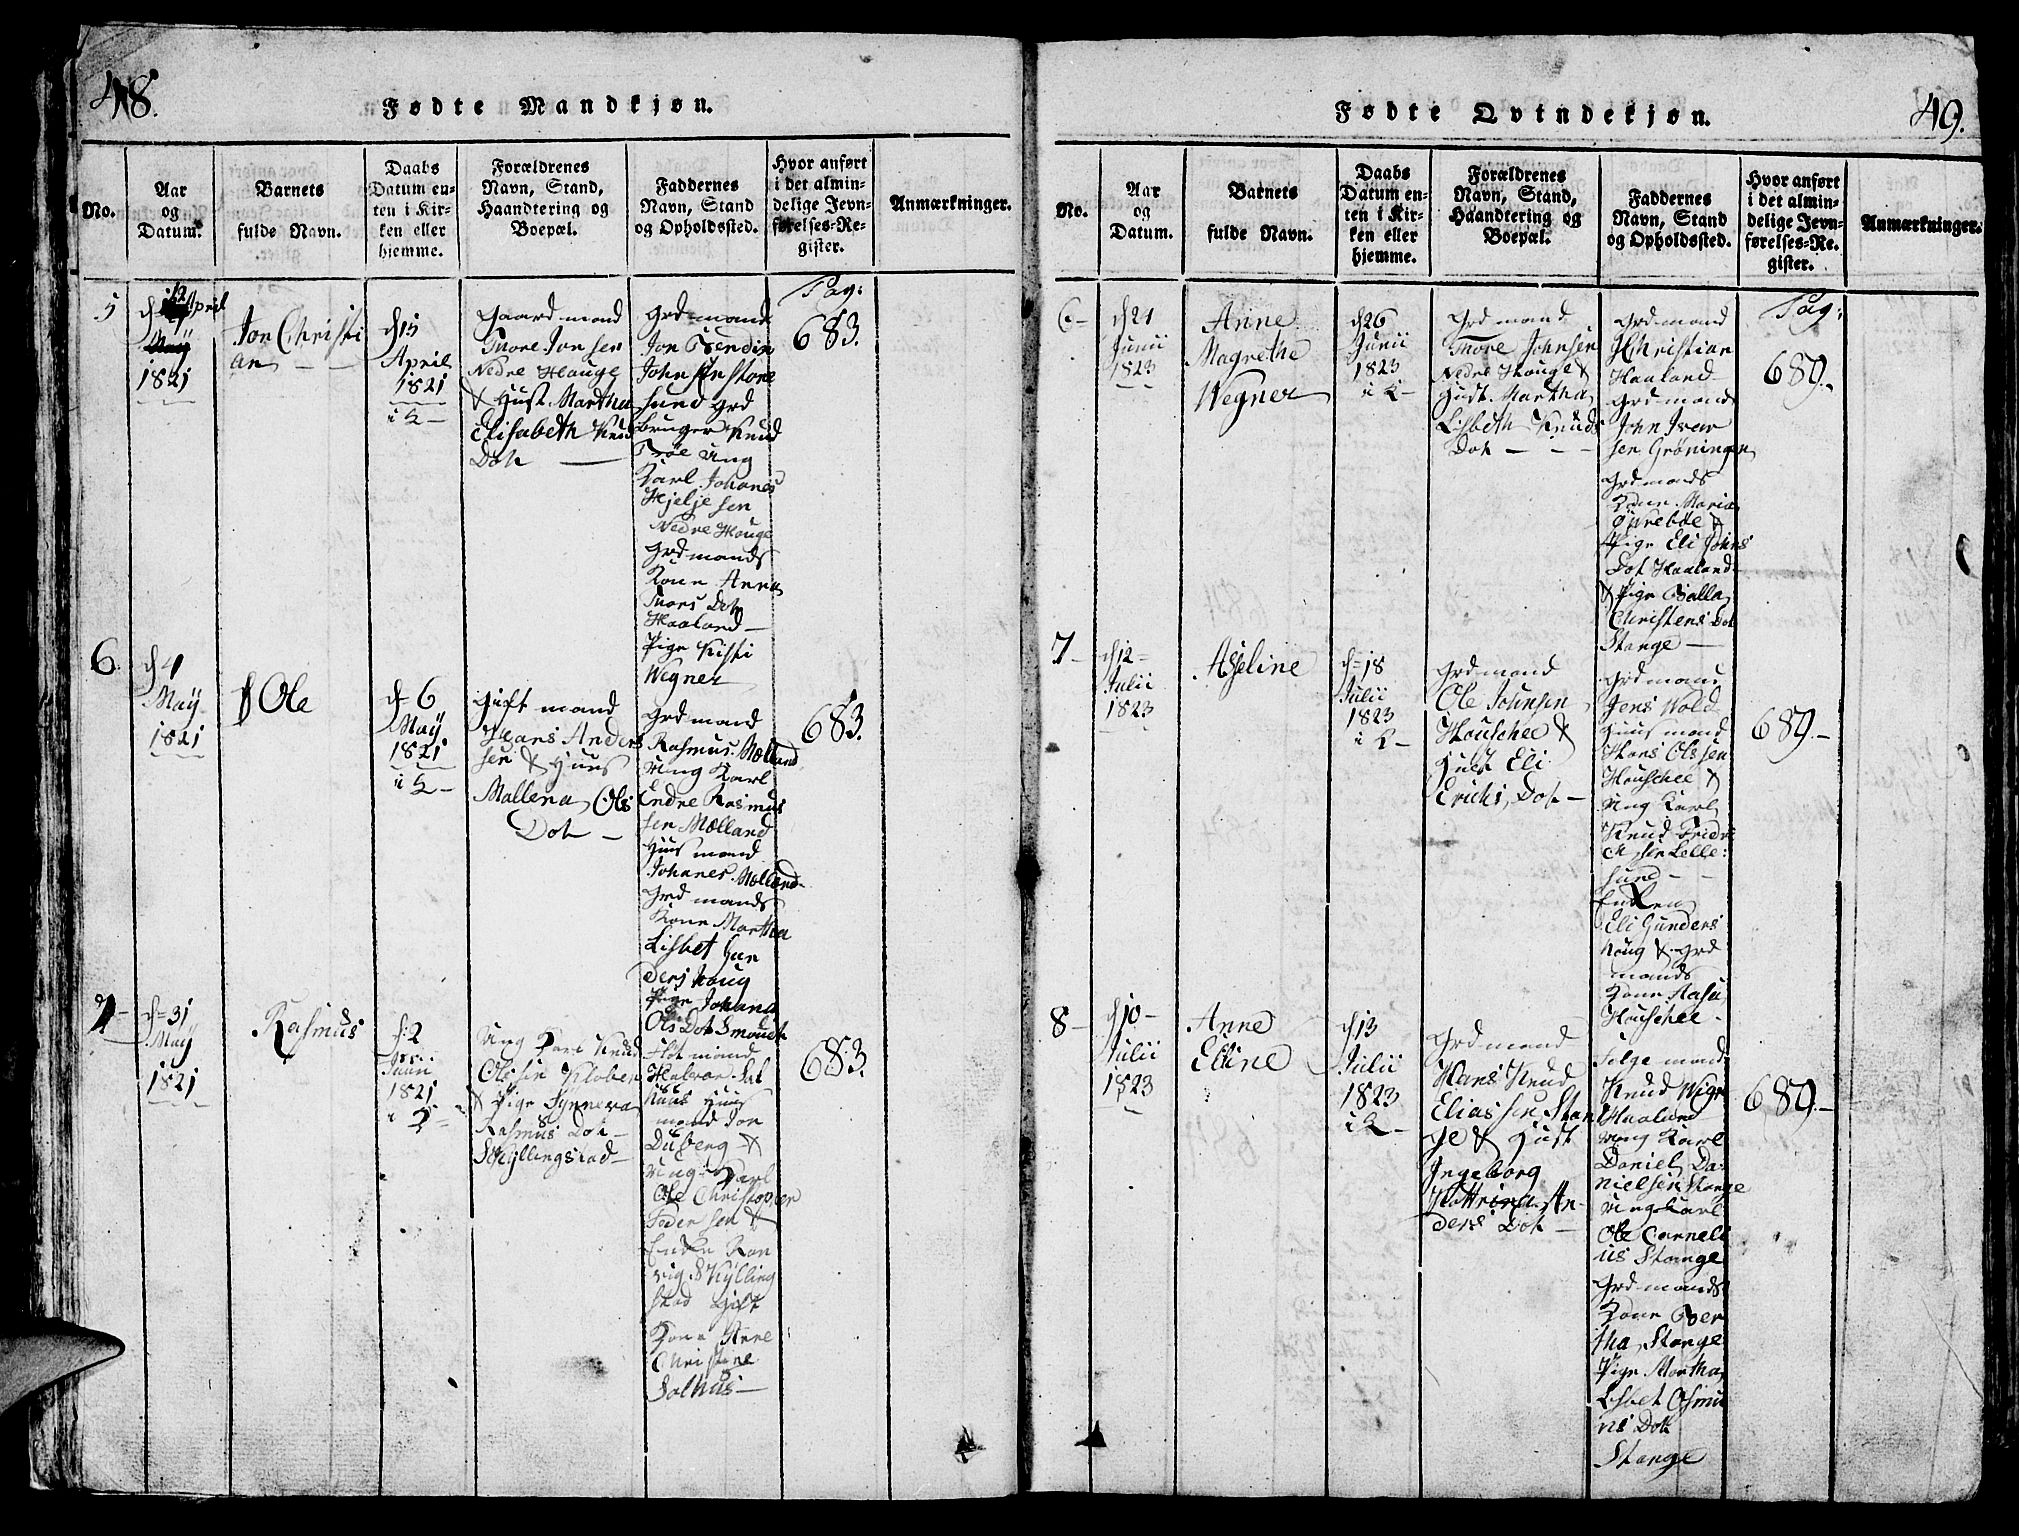 48.
Fødte Mandkjøn.
No.
Aar
og
Datum.
Barnets
fulde Navn.
Daabs
Datum en-
ten i Kir-
ken eller
hjemme.
Forældrenes
Navn, Stand,
Haandtering og
Boepæl.
Faddernes
Navn, Stand
og Opholdssted.
Hvor anført
i det almin-
delige Jevn-
førelses-Re-
gister.
Anmærkninger.
5
12
April
1821
Jon Christi
an
d 15
April
1821
i K
Gaardmand
Thore Jonsen
Nedre Houge
& Hust. Martha
Elisabeth Knud
Dot
Grdmand
Jon Bendix
Johnsen Store
sund Grd
bruger Knud
Troe Ung
Karl Johanes
Hjelje sen
Nedre Houge
Grdmands
Kone Anna
Thors Dot
Haaland
Pige Kisti
Wegner
Pag:
683.
6
d 4
May
1821
Ole
d 6
May
1821
i K
Gift mand
Hans Anders
sen & Huus
Mallena Ols
Dot
Grdmand
Rasmus Mælland
Ung Karl
Endre Rasmus
sen Mælland
Huusmand
Johanes Mælland
Grdmands
Kone Martha
Lisbet Gun
ders houg
Pige Johana
Ols Dot Smoudt
683.
7
d 31
May
1821
Rasmus
d: 2
Junii
1821
i K
Ung Karl Knud
Olesen Kloben
& Pige Synneva
Rasmus Dot
Skyllingstad
Halvor Sal
huus Huus
mand Jon
Duberg &
Ung Karl
Ole Christopher
Peder sen &
Enke Ran
vig Skylling
stad Gift
Kone Anne
Christene
Salhus
683.
49.
Fødte Qvindekjøn.
No.
Aar
og
Datum.
Barnets
fulde Navn.
Daabs
Datum en-
ten i Kir-
ken eller
hjemme.
Forældrenes
Navn, Stand,
Haandtering og
Boepæl.
Faddernes
Navn, Stand
og Opholdssted.
Hvor anført
i det almin-
delige Jevn-
førelses-Re-
gister.
Anmærkninger.
6
d 21
Junii
1823
Anne
Magrethe
Wegner
d 26
Junii
1823
i K
Grdmand
Thore Johnsen
Nedre Houge &
Hust. Martha
Lisbeth Knuds
Dot
Grdmand
H Christian
Haaland
Grdmand
John Iver
sen Grøningen
Grdmands
Kone Maria
Øvrebøe &
Pige Eli Johns
Dot Haaland
& Pige Malla
Christens Dot
Stange
Pag:
689.
7
d 12
Julii
1823
Asseline
d 18
Julii
1823
i K
Grdmand
Ole Johnsen
Houschee &
Hust Eli
Erichs Dot
Grdmand
Jens Wold
Huusmand
Hans Olssen
Houschee &
Ung Karl
Knud Fride
ch sen Lelle:
sund
Enken
Eli Gunders
houg & Grd
mands
Kone Aasa
Houschee
689.
8
d 10
Julii
1823
Anne
Elline
d 13
Julii
1823
i K
Grdmand
Hans Knud
Eliassen Stan
ge & Hust
Ingeborg
Kattrina An-
ders Dot
Knud Wigr
Haaland
Ung Karl
Daniel Da-
nielsen Stange
Ung Karl
Ole Corneli
us Stange
Grdmands
Kone Ber
tha Stange
Pige Martha
Lisbet Osmu
nds Dot
Stange
689.